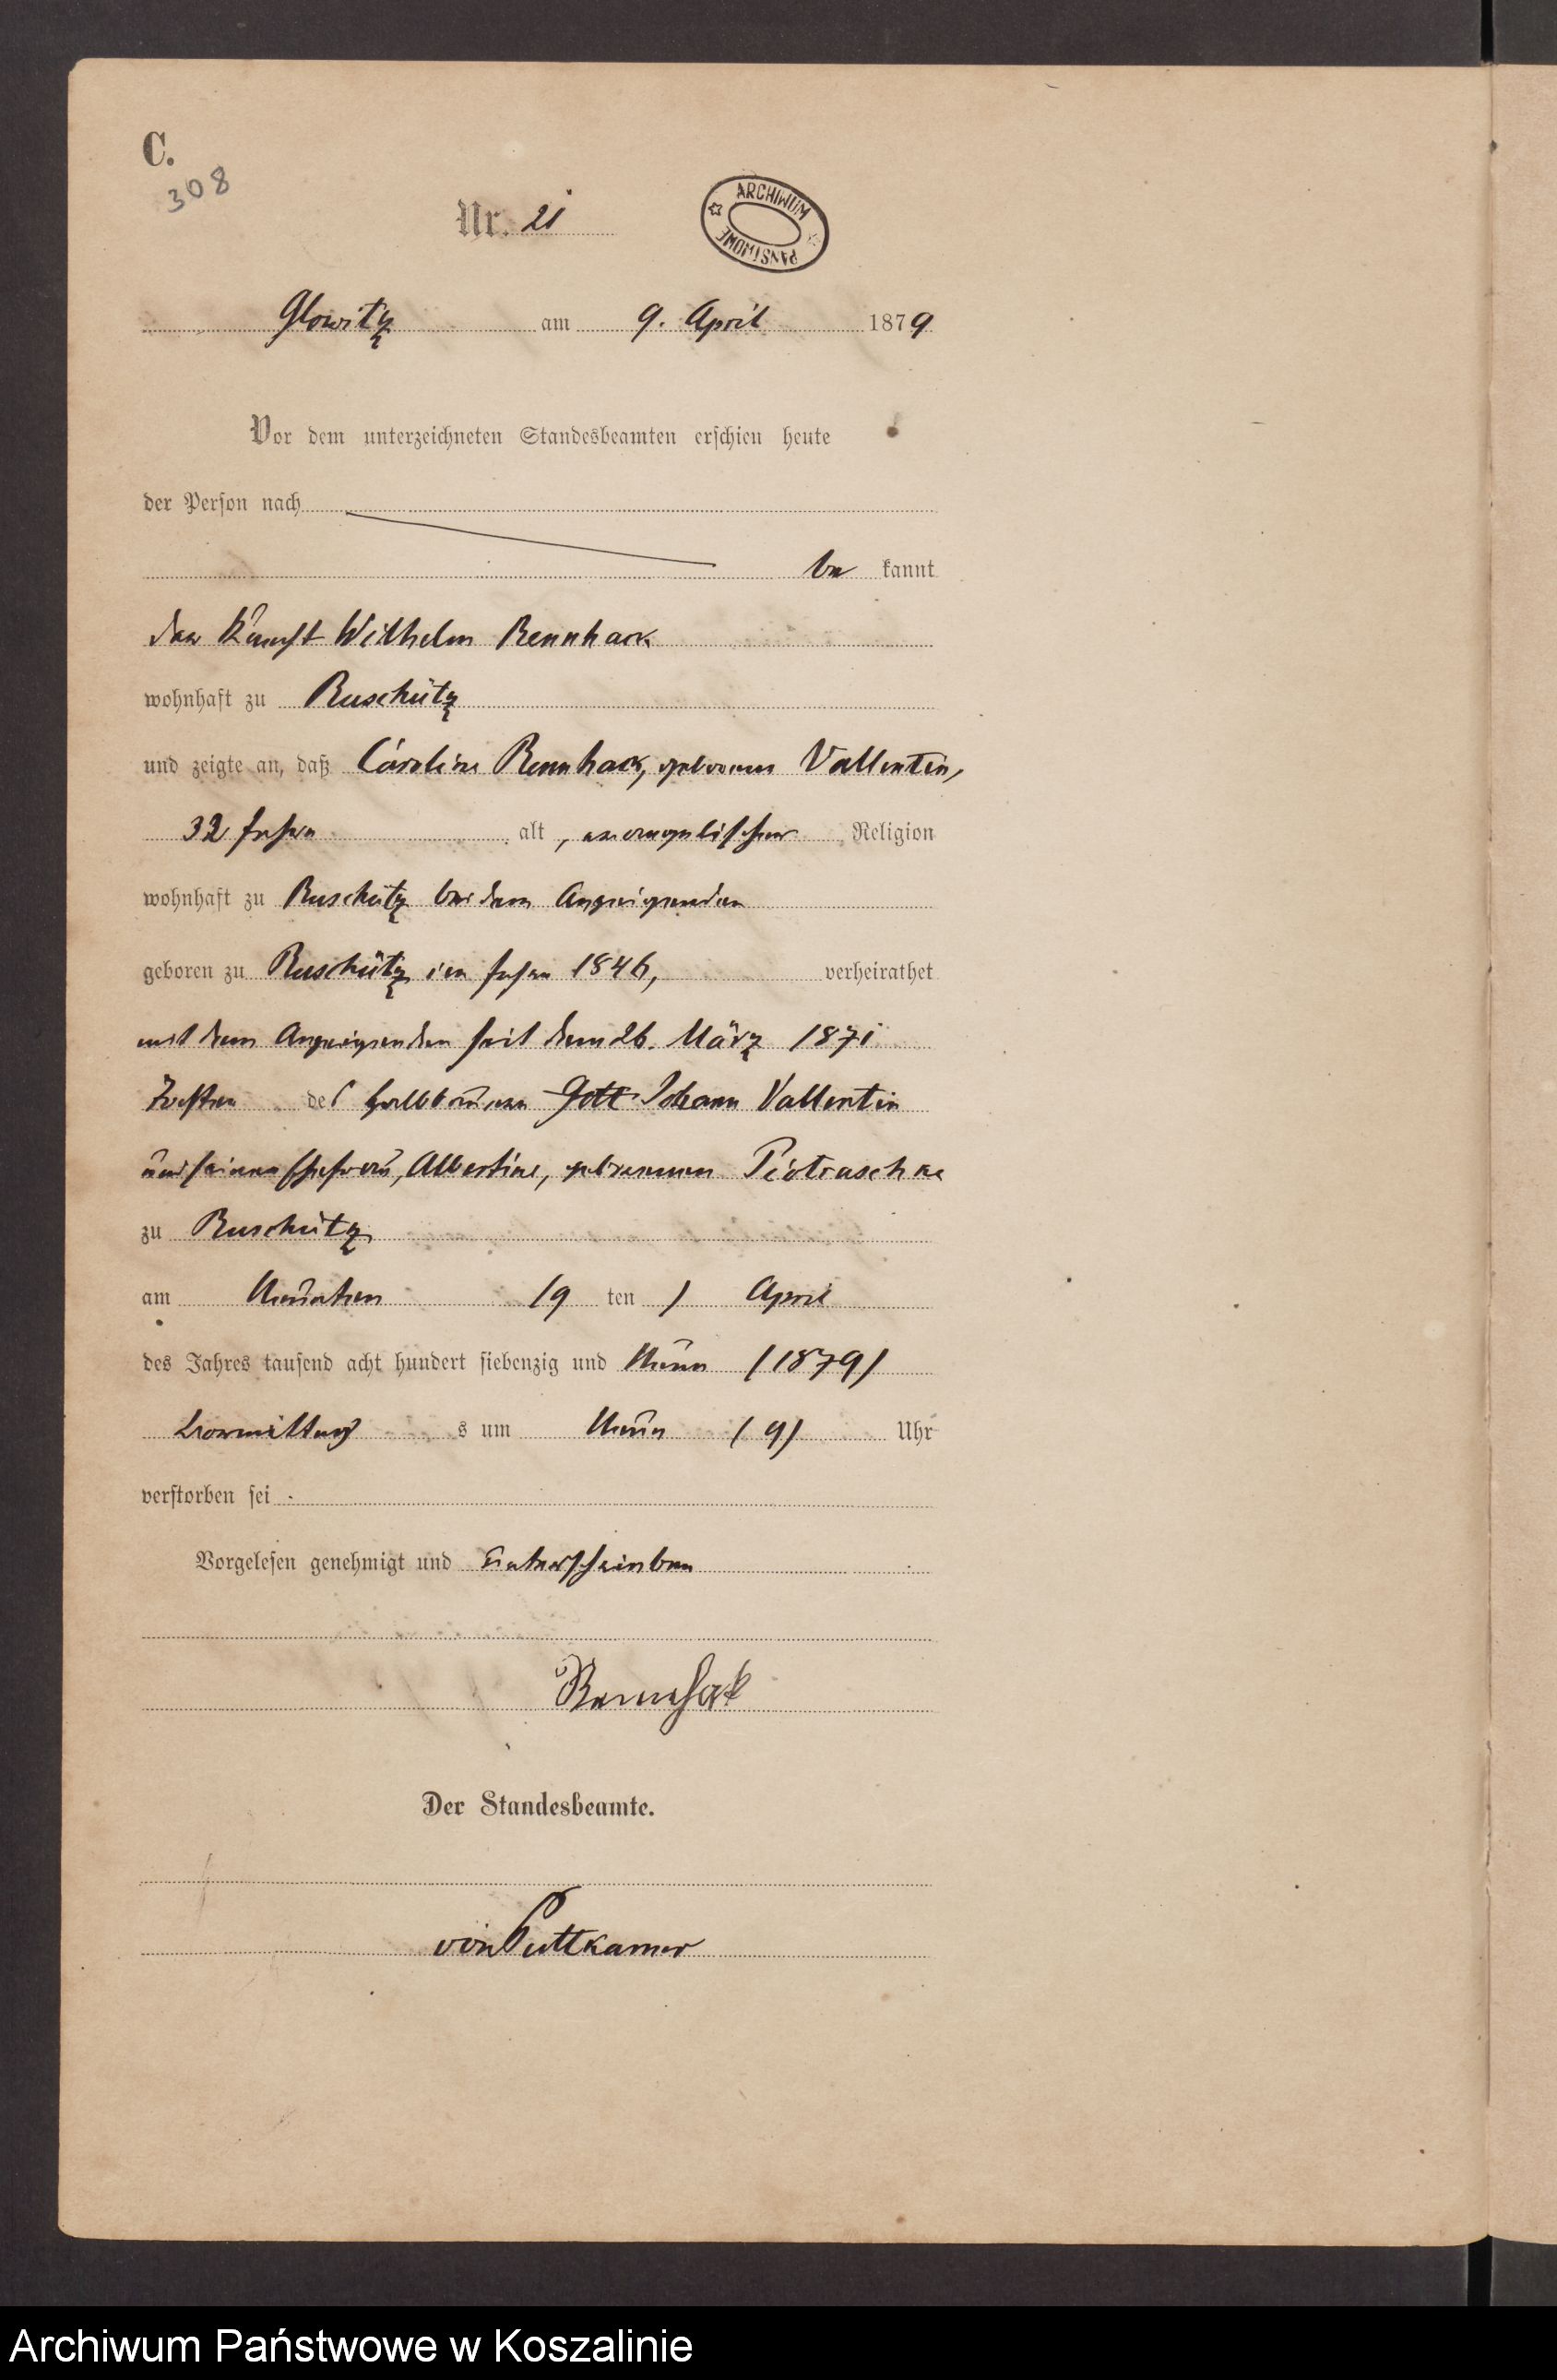 C.
308
Nr. 21
ARCHIWUM PAŃSTWOWE
Glowitz am 9. April 1879
Vor dem unterzeichneten Standesbeamten erschien heute
der Person nach
be kannt
der Wilhelm Rennhack
wohnhaft zu Ruschütz
und zeigte an, daß Caroline Rennhack, geborenen Vallentin,
32 Jahre alt, evangelischer Religion
wohnhaft zu Ruschütz bei dem Anzeigenden
geboren zu Ruschütz im Jahre 1846, verheirathet
mit dem Anzeigenden seit dem 26. März 1871
Tochter des Halbbauern Gott Johann Vallentin
und seiner Ehefrau, Albertine, geborenen Piotraschke
zu Ruschütz
am Neunten /9 ten / April
des Jahres tausend acht hundert siebenzig und Neun /1879/
Vormittag s um Neun /9/ Uhr
verstorben sei.
Vorgelesen genehmigt und unterschrieben
Rennhak
Der Standesbeamte.
von Puttkamer
Archiwum Państwowe w Koszalinie